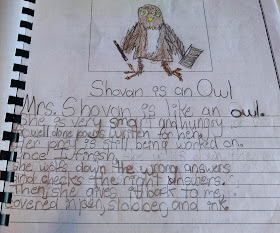 Shovan is an Owl
Mrs. Shovan is like an owl.
She is very smart and hungry
well done poems written for her.
Her poet is still being worked on.
Once I finish,
She wolfs down the wrong answers
and checks the right answers.
Then she gives it back to me,
covered in pen, slobber, and ink.